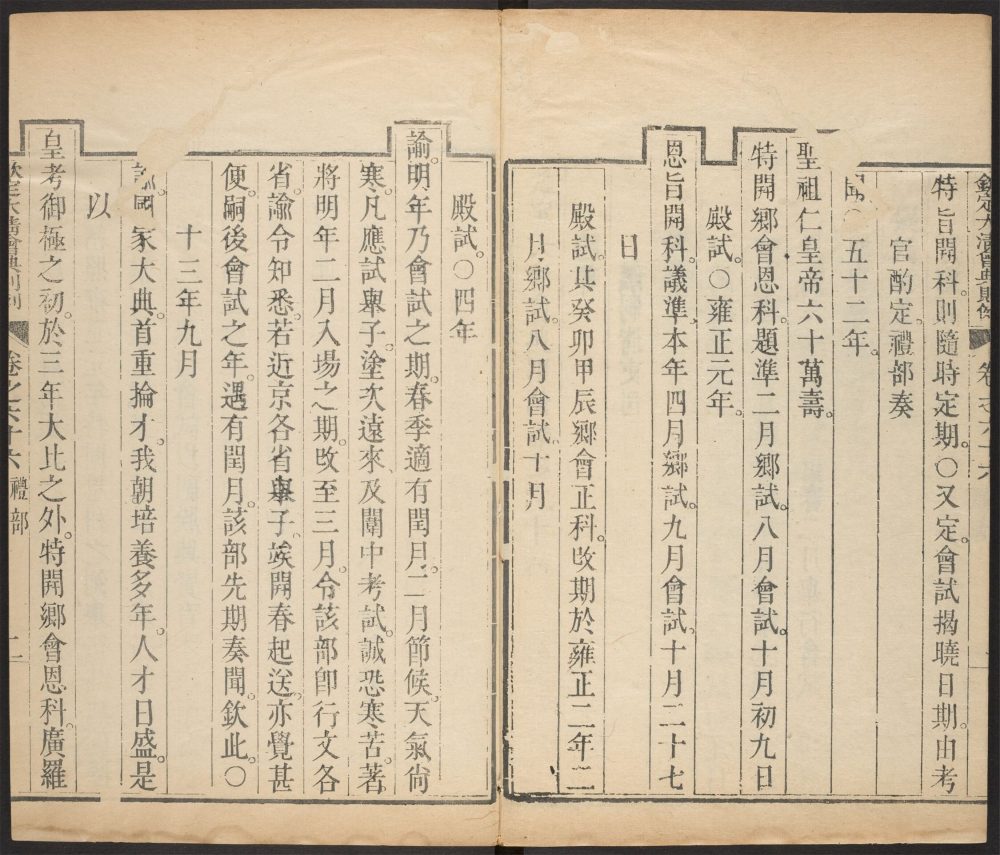 欽定大淸會典則例 卷之六十六
特旨開科則隨時定期〇又定會試揭曉日期由考
官酌定禮部奏
聞〇五十二年
聖祖仁皇帝六十萬壽
特開鄉會恩科題準二月鄉試八月會試十月初九日
殿試〇雍正元年
恩旨開科議準本年四月鄉試九月會試十月二十七
日
殿試其癸卯甲辰鄉會正科改期於雍正二年二
月鄉試八月會試十月
殿試〇四年
諭明年乃會試之期春季適有閏月二月節候天氣尙
寒凡應試舉子塗次遠來及闈中考試誠恐寒苦著
將明年二月入場之期改至三月令該部卽行文各
省諭令知悉若近京各省舉子竢開春起送亦覺甚
便嗣後會試之年遇有閏月該部先期奏聞欽此〇
十三年九月
諭國家大典首重掄才我朝培養多年人才日盛是
以
皇考御極之初於三年大比之外特開鄉會恩科廣羅
欽定大淸會典則例 卷之六十六 禮部 二